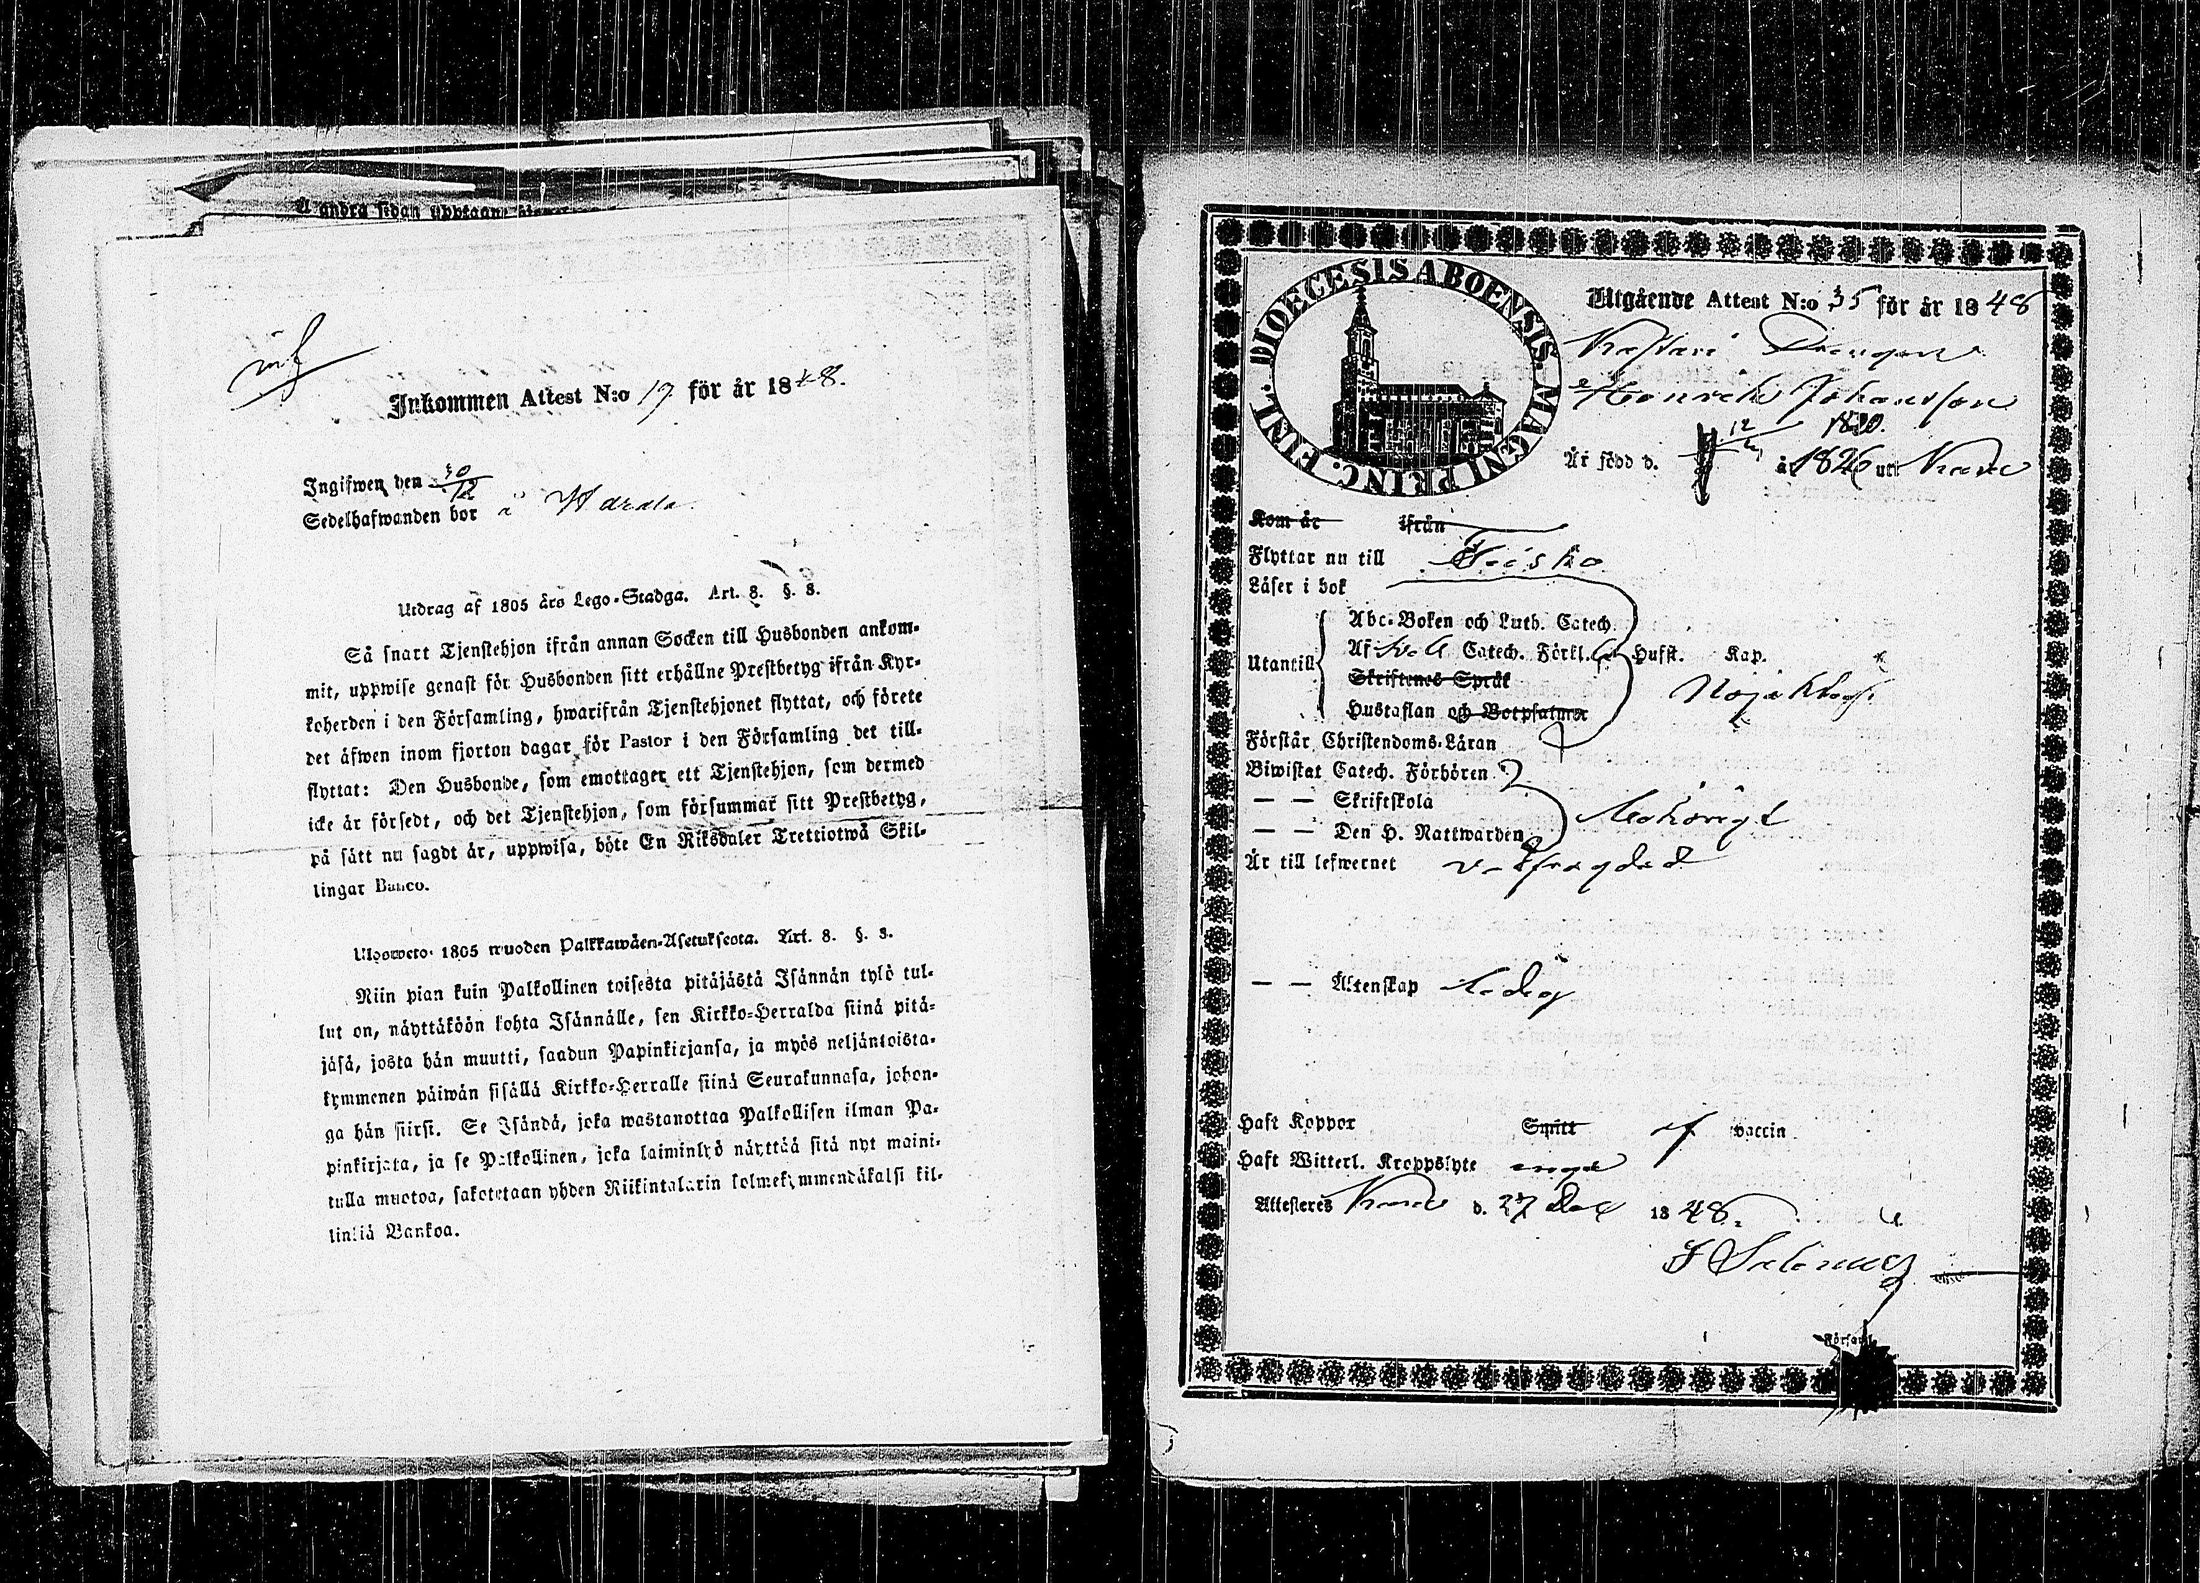 Å andra sidan upptagne
Inkommen Attest N:o 19 för år 1848.
Ingifwen den 30/12
Sedelhafwanden bor å
Utdrag af 1805 års Lego-Stadga. Art. 8. §. 3.
Så snart Tjenstehjon ifrån annan Socken till Husbonden ankom-
mit, uppwise genast för Husbonden sitt erhållne Prestbetyg ifrån Kyr-
koherden i den Församling, hwarifrån Tjenstehjonet flyttat, och förete
det äfwen inom fjorton dagar för Pastor i den Församling det till-
flyttat: Den Husbonde, som emottager ett Tjenstehjon, som dermed
icke är försedt, och det Tjenstehjon, som försummar sitt Prestbetyg,
på sätt nu sagdt är, uppwisa, böte En Riksdaler Trettiotwå Skil-
lingar Banco.
Ulosweto 1805 wuoden Palkkawäen-Asetuksesta. Art. 8. §. 3.
Niin pian kuin Palkollinen toisesta pitäjästä Isännän tylö tul-
lut on, näyttäköön kohta Isännälle, sen Kirkko-Herralda siinä pitä-
jäsä, josta hän muutti, saadun Papinkirjansa, ja myös neljäntoista-
kymmenen päiwän sisällä Kirkko-Herralle siinä Seurakunnasa, johon-
ga hän siirsi. Se Isändä, joka wastanottaa Palkollisen ilman Pa-
pinkirjata, ja se Palkollinen, joka laiminlyö näyttää sitä nyt maini-
tulla muotoa, sakotetaan yhden Riikintalarin kolmekymmendäkaksi kil-
linkiä Bankoa.
DIOECESIS ABOENSIS. MAGNI PRINC. FINL.
Utgående Attest N:o 35 för år 1848
Drengen
Henrik Johansson
1820.
Är född d. 12 år 1826 uti
Kom år ifrån
Flyttar nu till
Läser i bok
Abc-Boken och Luth. Catech.
Utantill Af Catech. Förkl. Hufst. Kap.
Skriftenes Språk
Hustaflan och Botpsalmer
Förstår Christendoms-Läran
Biwistat Catech. Förhören
— — Skriftskola
— — Den H. Nattwarden
Är till lefwernet
— — Äktenskap Ledig
Haft Koppor Smitt af vaccin
Haft Witterl. Kroppslyte inga
Attesteres d. 27 Dec 1848.
Församl.